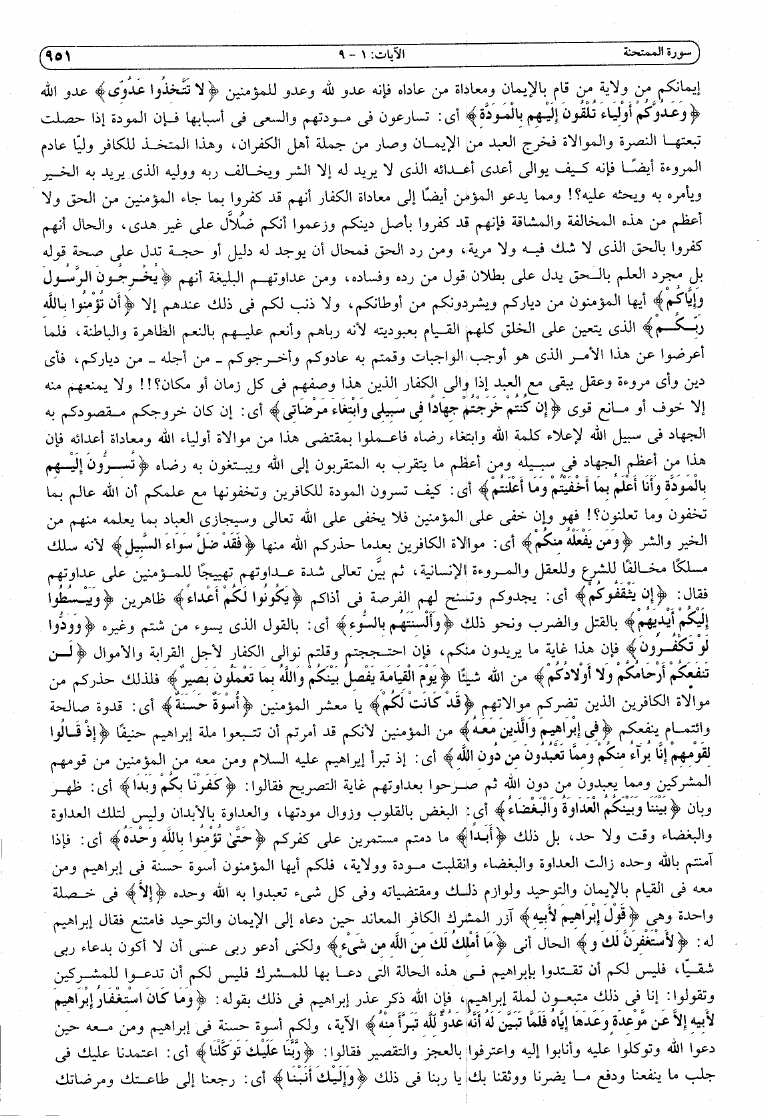 سورة الممتحنة الآيات: ١ - ٩ ٩٥١
إيمانكم من ولاية من قام بالإيمان ومعاداة من عاداه فإنه عدو لله وعدو للمؤمنين ﴿لا تَتَّخِذُوا عَدُوِّى﴾ عدو الله
﴿وَعَدُوَّكُمْ أَوْلِيَاءَ تُلْقُونَ إِلَيْهِم بِالْمَوَدَّةِ﴾ أى: تسارعون فى مودتهم والسعى فى أسبابها فإن المودة إذا حصلت
تبعتها النصرة والموالاة فخرج العبد من الإيمان وصار من جملة أهل الكفران، وهذا المتخذ للكافر وليّا عادم
المروءة أيضًا فإنه كيف يوالى أعدى أعدائه الذى لا يريد له إلا الشر ويخالف ربه ووليه الذى يريد به الخير
ويأمره به ويحثه عليه؟! ومما يدعو المؤمن أيضًا إلى معاداة الكفار أنهم قد كفروا بما جاء المؤمنين من الحق ولا
أعظم من هذه المخالفة والمشاقة فإنهم قد كفروا بأصل دينكم وزعموا أنكم ضُلاَّل على غير هدى، والحال أنهم
كفروا بالحق الذى لا شك فيه ولا مرية، ومن رد الحق فمحال أن يوجد له دليل أو حجة تدل على صحة قوله
بل مجرد العلم بالحق يدل على بطلان قول من رده وفساده، ومن عداوتهم البليغة أنهم ﴿يُخْرِجُونَ الرَّسُولَ
وَإِيَّاكُمْ﴾ أيها المؤمنون من دياركم ويشردونكم من أوطانكم، ولا ذنب لكم فى ذلك عندهم إلا ﴿أَن تُؤْمِنُوا بِاللَّهِ
رَبِّكُمْ﴾ الذى يتعين على الخلق كلهم القيام بعبوديته لأنه رباهم وأنعم عليهم بالنعم الظاهرة والباطنة، فلما
أعرضوا عن هذا الأمر الذى هو أوجب الواجبات وقمتم به عادوكم وأخرجوكم ـ من أجله ـ من دياركم، فأى
دين وأى مروءة وعقل يبقى مع العبد إذا والى الكفار الذين هذا وصفهم فى كل زمان أو مكان؟!! ولا يمنعهم منه
إلا خوف أو مانع قوى ﴿إِن كُنتُمْ خَرَجْتُمْ جِهَادًا فِى سَبِيلِى وَابْتِغَاءَ مَرْضَاتِى﴾ أى: إن كان خروجكم مقصودكم به
الجهاد فى سبيل الله لإعلاء كلمة الله وابتغاء رضاه فاعملوا بمقتضى هذا من موالاة أولياء الله ومعاداة أعدائه فإن
هذا من أعظم الجهاد فى سبيله ومن أعظم ما يتقرب به المتقربون إلى الله ويبتغون به رضاه ﴿تُسِرُّونَ إِلَيْهِم
بِالْمَوَدَّةِ وَأَنَا أَعْلَمُ بِمَا أَخْفَيْتُمْ وَمَا أَعْلَنتُمْ﴾ أى: كيف تسرون المودة للكافرين وتخفونها مع علمكم أن الله عالم بما
تخفون وما تعلنون؟! فهو وإن خفى على المؤمنين فلا يخفى على الله تعالى وسيجازى العباد بما يعلمه منهم من
الخير والشر ﴿وَمَن يَفْعَلْهُ مِنكُمْ﴾ أى: موالاة الكافرين بعدما حذركم الله منها ﴿فَقَدْ ضَلَّ سَوَاءَ السَّبِيلِ﴾ لأنه سلك
مسلكًا مخالفًا للشرع وللعقل والمروءة الإنسانية، ثم بيَّن تعالى شدة عداوتهم تهييجًا للمؤمنين على عداوتهم
فقال: ﴿إِن يَثْقَفُوكُمْ﴾ أى: يجدوكم وتسنح لهم الفرصة فى أذاكم ﴿يَكُونُوا لَكُمْ أَعْدَاءً﴾ ظاهرين ﴿وَيَبْسُطُوا
إِلَيْكُمْ أَيْدِيَهُمْ﴾ بالقتل والضرب ونحو ذلك ﴿وَأَلْسِنَتَهُم بِالسُّوءِ﴾ أى: بالقول الذى يسوء من شتم وغيره ﴿وَوَدُّوا
لَوْ تَكْفُرُونَ﴾ فإن هذا غاية ما يريدون منكم، فإن احتججتم وقلتم نوالى الكفار لأجل القرابة والأموال ﴿لَن
تَنفَعَكُمْ أَرْحَامُكُمْ وَلا أَوْلادُكُمْ﴾ من الله شيئًا ﴿يَوْمَ الْقِيَامَةِ يَفْصِلُ بَيْنَكُمْ وَاللَّهُ بِمَا تَعْمَلُونَ بَصِيرٌ﴾ فلذلك حذركم من
موالاة الكافرين الذين تضركم موالاتهم ﴿قَدْ كَانَتْ لَكُمْ﴾ يا معشر المؤمنين ﴿أُسْوَةٌ حَسَنَةٌ﴾ أى: قدوة صالحة
وائتمام ينفعكم ﴿فِى إِبْرَاهِيمَ وَالَّذِينَ مَعَهُ﴾ من المؤمنين لأنكم قد أمرتم أن تتبعوا ملة إبراهيم حنيفًا ﴿إِذْ قَالُوا
لِقَوْمِهِمْ إِنَّا بُرَآءُ مِنكُمْ وَمِمَّا تَعْبُدُونَ مِن دُونِ اللَّهِ﴾ أى: إذ تبرأ إبراهيم عليه السلام ومن معه من المؤمنين من قومهم
المشركين ومما يعبدون من دون الله ثم صرحوا بعداوتهم غاية التصريح فقالوا: ﴿كَفَرْنَا بِكُمْ وَبَدَا﴾ أى: ظهر
وبان ﴿بَيْنَنَا وَبَيْنَكُمُ الْعَدَاوَةُ وَالْبَغْضَاءُ﴾ أى: البغض بالقلوب وزوال مودتها، والعداوة بالأبدان وليس لتلك العداوة
والبغضاء وقت ولا حد، بل ذلك ﴿أَبَدًا﴾ ما دمتم مستمرين على كفركم ﴿حَتَّىٰ تُؤْمِنُوا بِاللَّهِ وَحْدَهُ﴾ أى: فإذا
آمنتم بالله وحده زالت العداوة والبغضاء وانقلبت مودة وولاية، فلكم أيها المؤمنون أسوة حسنة فى إبراهيم ومن
معه فى القيام بالإيمان والتوحيد ولوازم ذلك ومقتضياته وفى كل شىء تعبدوا به الله وحده ﴿إِلاَّ﴾ فى خصلة
واحدة وهى ﴿قَوْلَ إِبْرَاهِيمَ لأَبِيهِ﴾ آزر المشرك الكافر المعاند حين دعاه إلى الإيمان والتوحيد فامتنع فقال إبراهيم
له: ﴿لأَسْتَغْفِرَنَّ لَكَ وَ﴾ الحال أنى ﴿مَا أَمْلِكُ لَكَ مِنَ اللَّهِ مِن شَىْءٍ﴾ ولكنى أدعو ربى عسى أن لا أكون بدعاء ربى
شقيّا، فليس لكم أن تقتدوا بإبراهيم فى هذه الحالة التى دعا بها للمشرك فليس لكم أن تدعوا للمشركين
وتقولوا: إنا فى ذلك متبعون لملة إبراهيم، فإن الله ذكر عذر إبراهيم فى ذلك بقوله: ﴿وَمَا كَانَ اسْتِغْفَارُ إِبْرَاهِيمَ
لأَبِيهِ إِلاَّ عَن مَّوْعِدَةٍ وَعَدَهَا إِيَّاهُ فَلَمَّا تَبَيَّنَ لَهُ أَنَّهُ عَدُوٌّ لِّلَّهِ تَبَرَّأَ مِنْهُ﴾ الآية، ولكم أسوة حسنة فى إبراهيم ومن معه حين
دعوا الله وتوكلوا عليه وأنابوا إليه واعترفوا بالعجز والتقصير فقالوا: ﴿رَبَّنَا عَلَيْكَ تَوَكَّلْنَا﴾ أى: اعتمدنا عليك فى
جلب ما ينفعنا ودفع ما يضرنا ووثقنا بك يا ربنا فى ذلك ﴿وَإِلَيْكَ أَنَبْنَا﴾ أى: رجعنا إلى طاعتك ومرضاتك